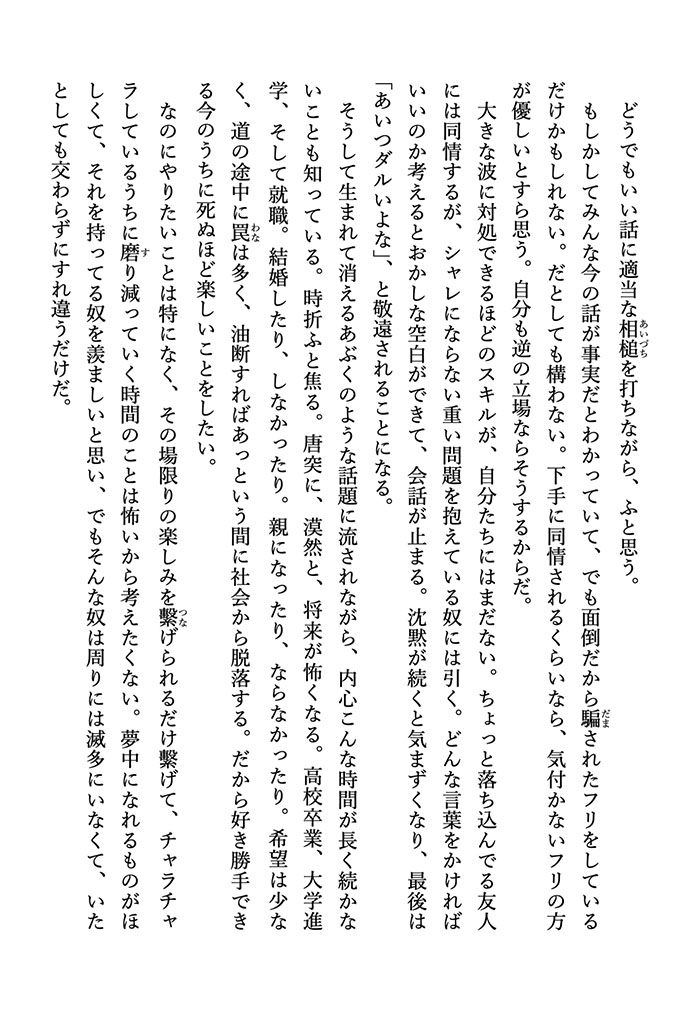 どうでもいい話に適当な相槌を打ちながら、ふと思う。
もしかしてみんな今の話が事実だとわかっていて、でも面倒だから騙されたフリをしている
だけかもしれない。だとしても構わない。下手に同情されるくらいなら、気付かないフリの方
が優しいとすら思う。自分も逆の立場ならそうするからだ。
大きな波に対処できるほどのスキルが、自分たちにはまだない。ちょっと落ち込んでる友人
には同情するが、シャレにならない重い問題を抱えている奴には引く。どんな言葉をかければ
いいのか考えるとおかしな空白ができて、会話が止まる。沈黙が続くと気まずくなり、最後は
「あいつダルいよな」、と敬遠されることになる。
そうして生まれて消えるあぶくのような話題に流されながら、内心こんな時間が長く続かな
いことも知っている。時折ふと焦る。唐突に、漠然と、将来が怖くなる。高校卒業、大学進
学、そして就職。結婚したり、しなかったり。親になったり、ならなかったり。希望は少な
く、道の途中に罠は多く、油断すればあっという間に社会から脱落する。だから好き勝手でき
る今のうちに死ぬほど楽しいことをしたい。
なのにやりたいことは特になく、その場限りの楽しみを繫げられるだけ繫げて、チャラチャ
ラしているうちに磨り減っていく時間のことは怖いから考えたくない。夢中になれるものがほ
しくて、それを持ってる奴を羨ましいと思い、でもそんな奴は周りには滅多にいなくて、いた
としても交わらずにすれ違うだけだ。